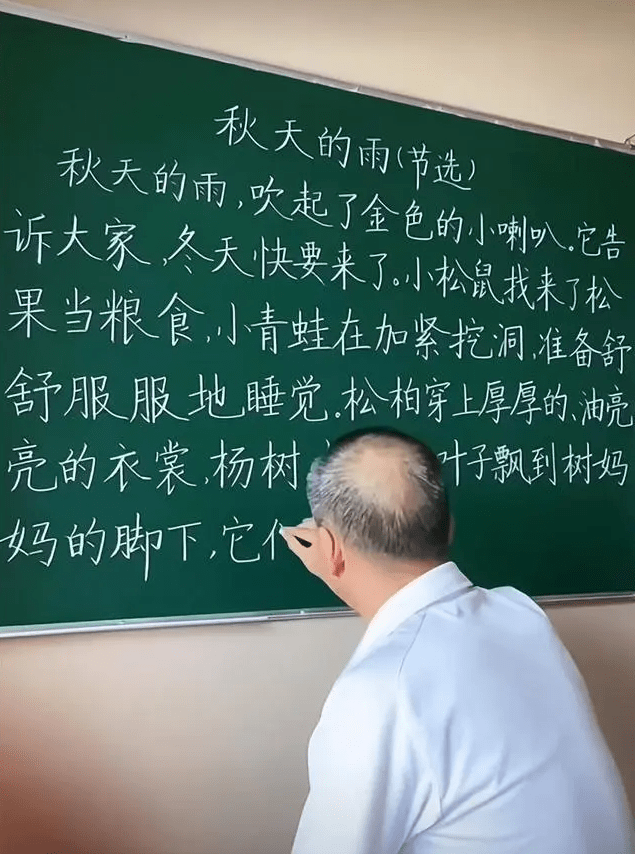 秋天的雨(节选)
秋天的雨,吹起了金色的小喇叭。它告
诉大家,冬天快要来了。小松鼠找来了松
果当粮食,小青蛙在加紧挖洞,准备舒
舒服服地睡觉。松柏穿上厚厚的、油亮
亮的衣裳,杨树 叶子飘到树妈
妈的脚下,它